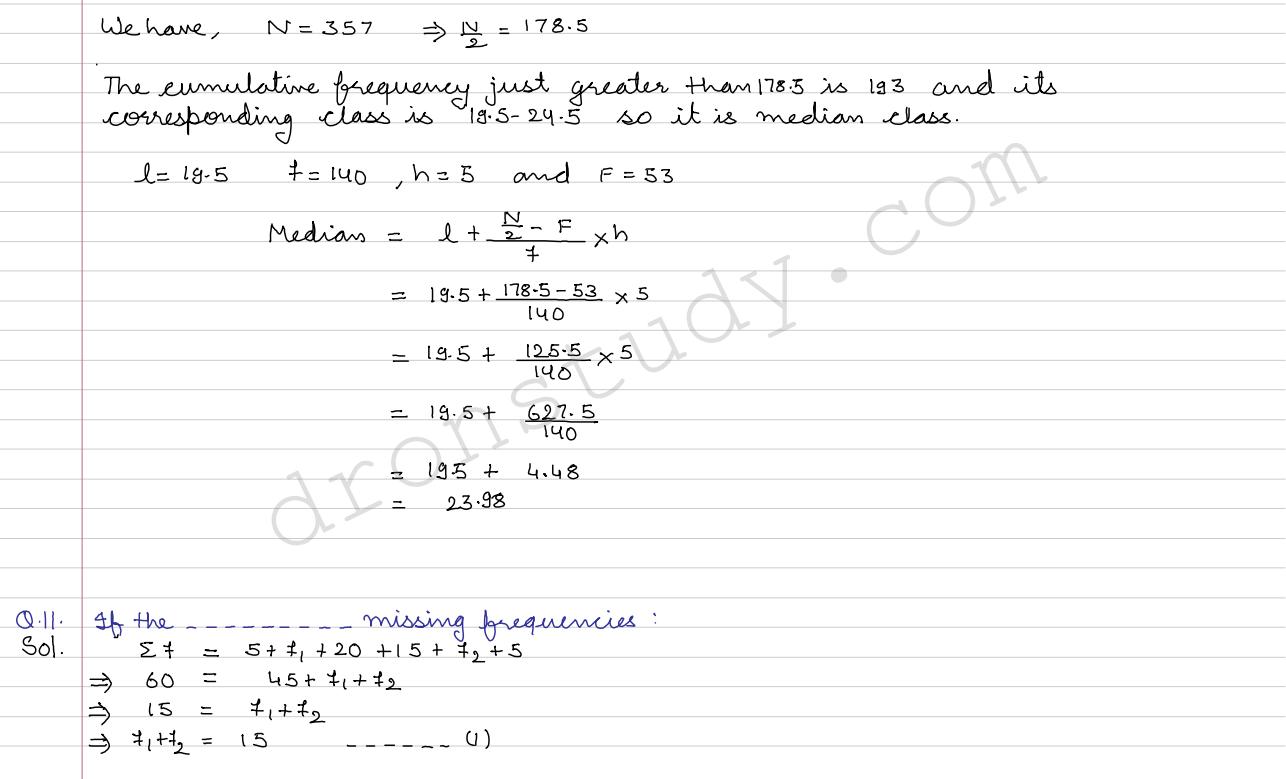 We have, N = 357 ⇒ N/2 = 178.5
The cumulative frequency just greater than 178.5 is 193 and its
corresponding class is 19.5-24.5 so it is median class.
l = 19.5 f = 140 , h = 5 and F = 53
Median = l + (N/2 - F)/f × h
= 19.5 + (178.5 - 53)/140 × 5
= 19.5 + 125.5/140 × 5
= 19.5 + 627.5/140
= 195 + 4.48
= 23.98
Q.11. If the _ _ _ _ _ _ _ _ _ missing frequencies :
Sol. Σf = 5 + f₁ + 20 + 15 + f₂ + 5
⇒ 60 = 45 + f₁ + f₂
⇒ 15 = f₁ + f₂
⇒ f₁ + f₂ = 15 _ _ _ _ _ _ (1)
dronstudy.com